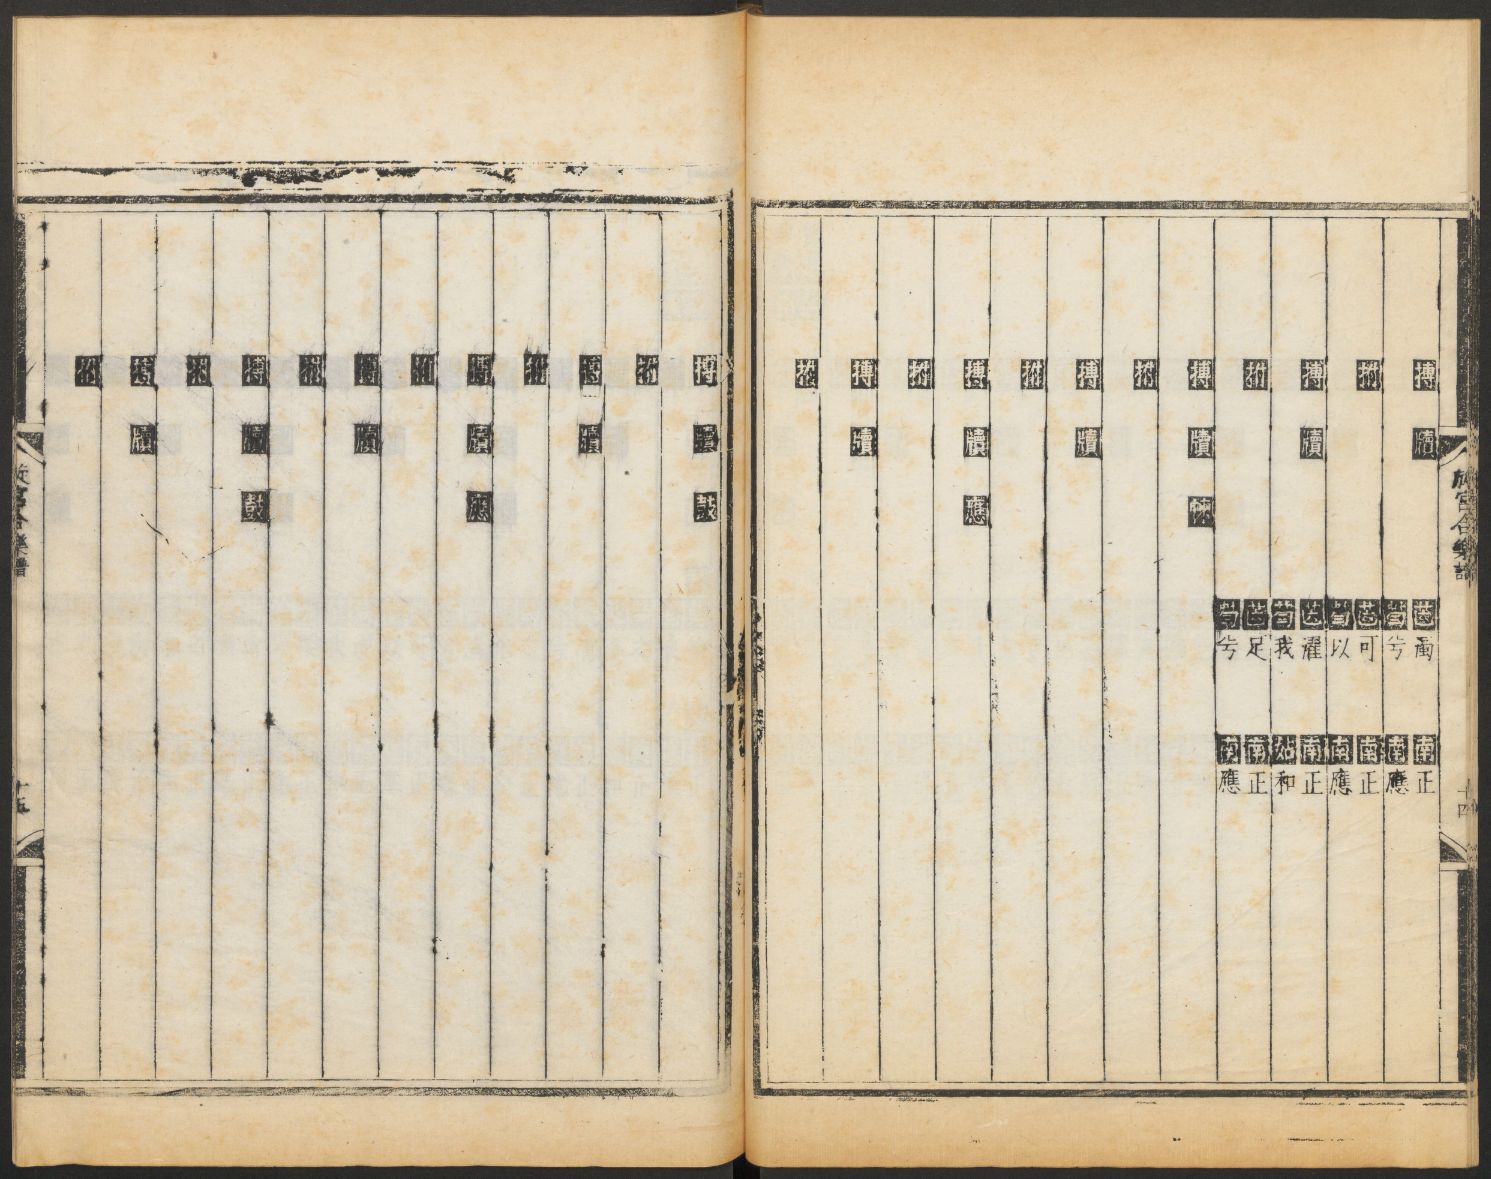 旋宮合樂譜
十四
搏牘濁南正
兮南應
拊可南正
以南應
搏牘濯南正
我姑和
拊足南正
兮南應
搏牘
拊
搏牘
拊
搏牘應
拊
搏牘
拊
搏牘鼓
拊
搏牘
拊
搏牘應
拊
搏牘
拊
搏牘鼓
拊
搏牘
拊
旋宮合樂譜
十五